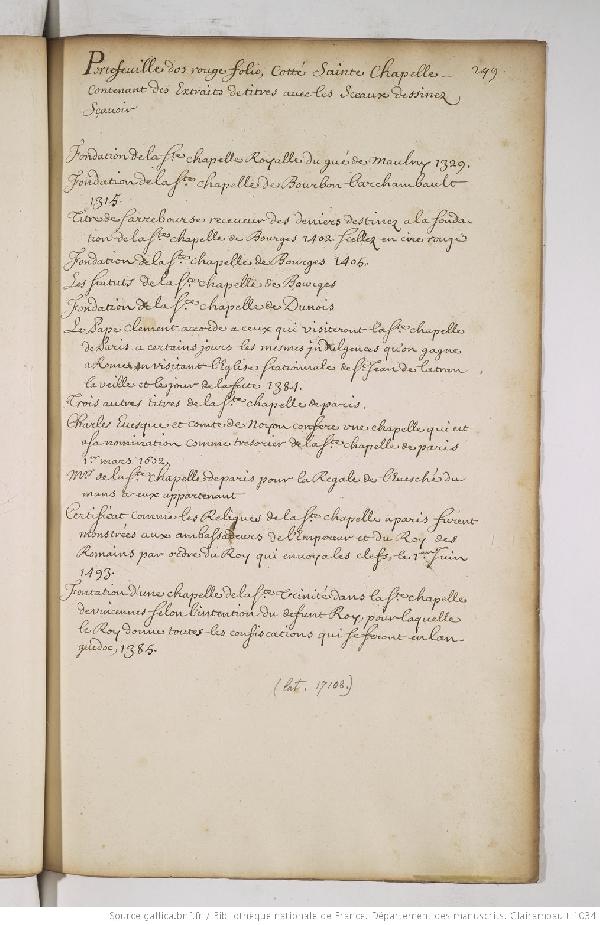 Portefeuille dos rouge folio, Cotté Sainte Chapelle 249.
Contenant des Extraits de titres avec les Sceaux dessinez
Sçavoir
Fondation de la Ste chapelle Royalle du gué de Maulny 1329.
Fondation de la Ste chapelle de Bourbon Larchambault
1315.
Titre de Sarrebourse receveur des deniers destinez a la fonda-
tion de la Ste chapelle de Bourges 1402 Scellez en cire rouge
Fondation de la Ste chapelle de Bourges 1405.
Les Statuts de la Ste chapelle de Bourges
Fondation de la Ste chapelle de Dunois
Le Pape Clement accorde a ceux qui visiteront la Ste chapelle
de Paris a certains jours les mesmes indulgences qu'on gagne
a Rome en visitant l'Eglise stationnale de St Jean de Latran
la veille et le jour de la feste 1381.
Trois autres titres de la Ste chapelle de paris.
Charles Evesque et comte de Noyon confere une chapelle qui est
a sa nomination comme tresorier de la Ste chapelle de paris
1er mars 1502.
Mrs de la Ste chapelle de paris pour la Regale de l'Evesché du
mans a eux appartenant
Certificat comme les Reliques de la Ste chapelle a paris furent
monstrées aux ambassadeurs de l'Empereur et du Roy des
Romains par ordre du Roy qui envoya les clefs, le 1er Juin
1493.
Fontation d'une chapelle de la Ste Trinité dans la Ste chapelle
de vincennes selon l'intention du defunt Roy, pour laquelle
le Roy donne toutes les confiscations qui se feront en lan-
guedoc, 1385.
(lat. 17108.)
Source gallica.bnf.fr / Bibliothèque nationale de France. Département des manuscrits. Clairambault 1034